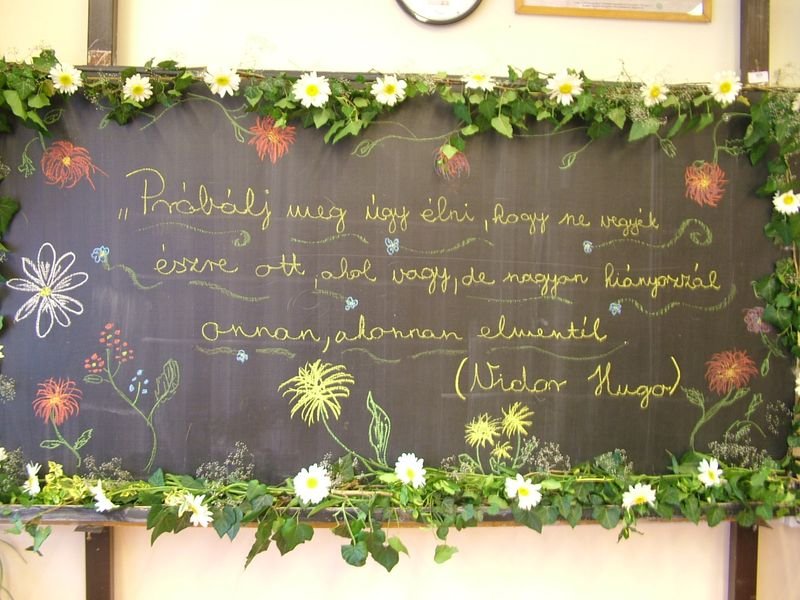 „Próbálj meg úgy élni, hogy ne vegyék
észre ott, ahol vagy, de nagyon hiányozzál
onnan, ahonnan elmentél.
(Vidor Hugo)